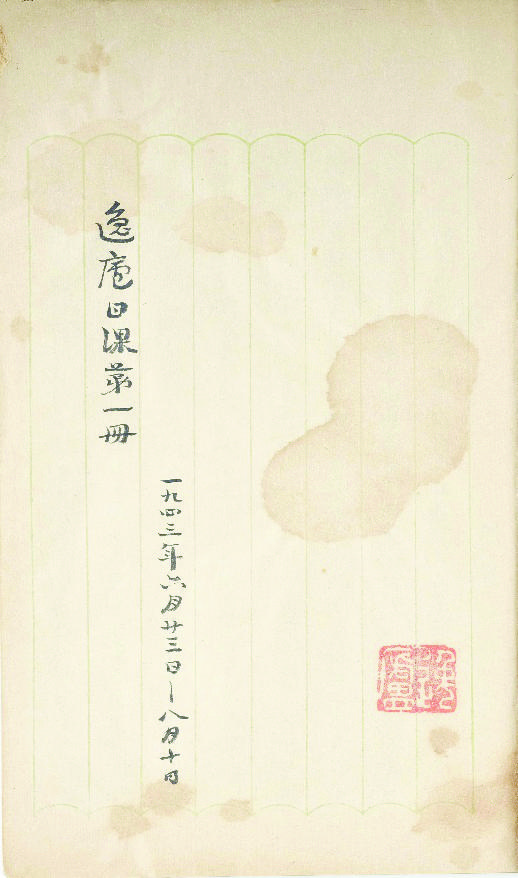 逸庵日课第一冊
一九四三年六月廿三日—八月十日